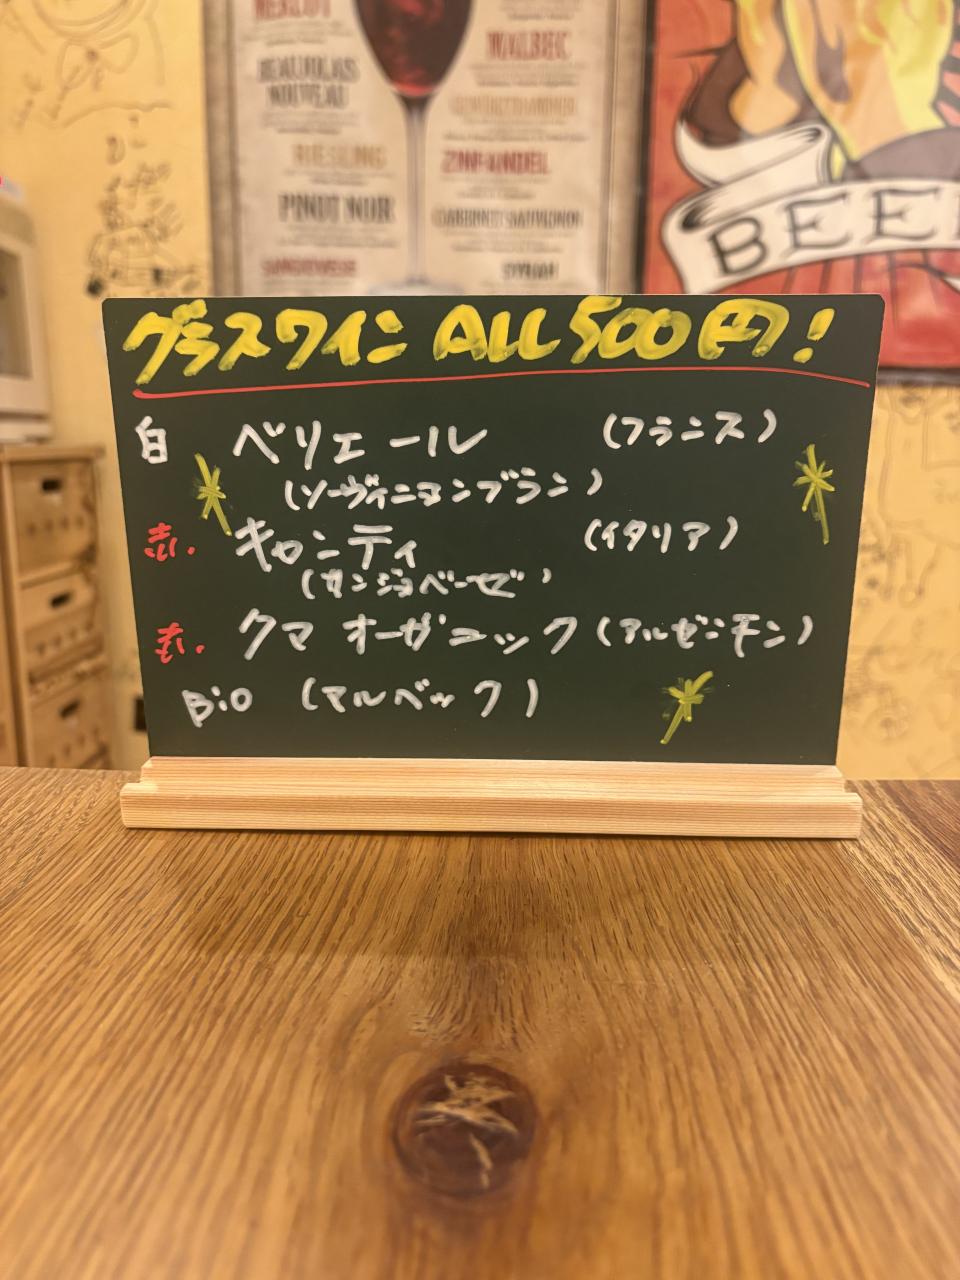 MERLOT
MALBEC
BEAUJOLAIS
NOUVEAU
GEWURZTRAMINER
RIESLING
ZINFANDEL
PINOT NOIR
CABERNET SAUVIGNON
SANGIOVESE
SYRAH
BEE
グラスワイン ALL 500円!
白 ベリエール (フランス)
(ソーヴィニヨンブラン)
赤. キャンティ (イタリア)
(サンジョベーゼ)
赤. クマ オーガニック (アルゼンチン)
Bio (マルベック)